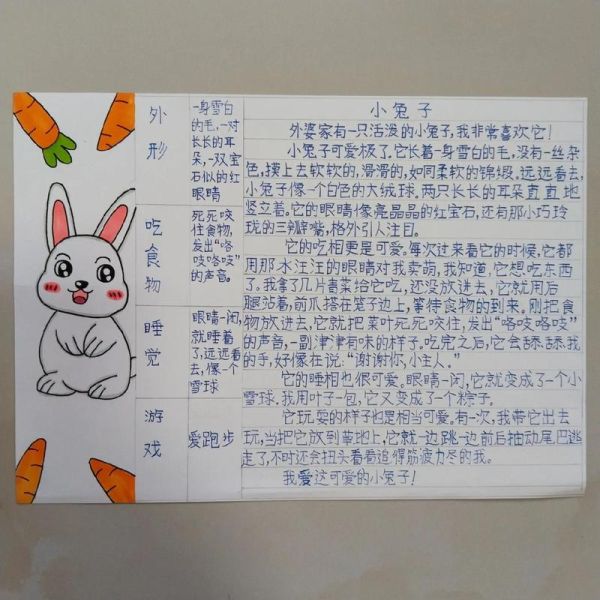 外形
一身雪白
的毛,一对
长长的耳
朵,一双宝
石似的红
眼睛
吃食物
死死咬
住食物,
发出“咯
吱咯吱”
的声音。
睡觉
眼睛一闭,
就睡着
了,远远看
去,像一个
雪球
游戏
爱跑步
小兔子
外婆家有一只活泼的小兔子,我非常喜欢它!
小兔子可爱极了。它长着一身雪白的毛,没有一丝杂
色,摸上去软软的,滑滑的,如同柔软的锦缎。远远看去,
小兔子像一个白色的大绒球。两只长长的耳朵直直地
竖立着。它的眼睛像亮晶晶的红宝石,还有那小巧玲
珑的三瓣嘴,格外引人注目。
它的吃相更是可爱。每次过来看它的时候,它都
用那水汪汪的眼睛对我卖萌,我知道,它想吃东西
了。我拿了几片青菜给它吃,还没放进去,它就用后
腿站着,前爪搭在笼子边上,等待食物的到来。刚把食
物放进去,它就把菜叶死死咬住,发出“咯吱咯吱”
的声音,一副津津有味的样子。吃完之后,它会舔舔我
的手,好像在说:“谢谢你,小主人。”
它的睡相也很可爱。眼睛一闭,它就变成了一个小
雪球。我用叶子一包,它又变成了一个粽子。
它玩耍的样子也是相当可爱。有一次,我带它出去
玩,当把它放到草地上,它就一边跳一边前后抽动尾巴逃
走了,不时还会扭头看看追得筋疲力尽的我。
我爱这可爱的小兔子!